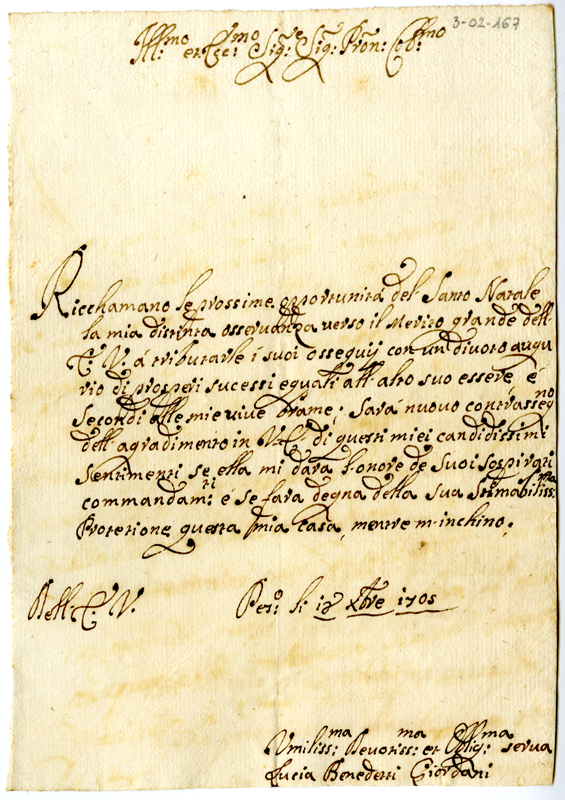 3-02-167
Ill:mo et Ecc:mo Sig:re Sig:r Pron: Col:mo
Ricchamano le prossime opportunità del Santo Natale
la mia distinta osservanza verso il Merito grande dell
E. V. à tributarle i suoi ossequij con un divoto augu
rio di prosperi sucessi eguali all' alto suo essere, é
secondi alle mie vive brame; Sarà nuovo contrasseg:no
dell' agradimento in V.E. di questi miei candidissimi
Sentimenti se ella mi darà l'onore de Suoi sospirati
commandam:ti e se farà degna della sua Stimabiliss:ma
Protetione questa mia casa, mentre m'inchino.
Dell' E. V.
Pes:o li 12 Xbre 1705
Umiliss:ma Devotiss:ma et Oblig:ma serva
Lucia Benedetti Giordani